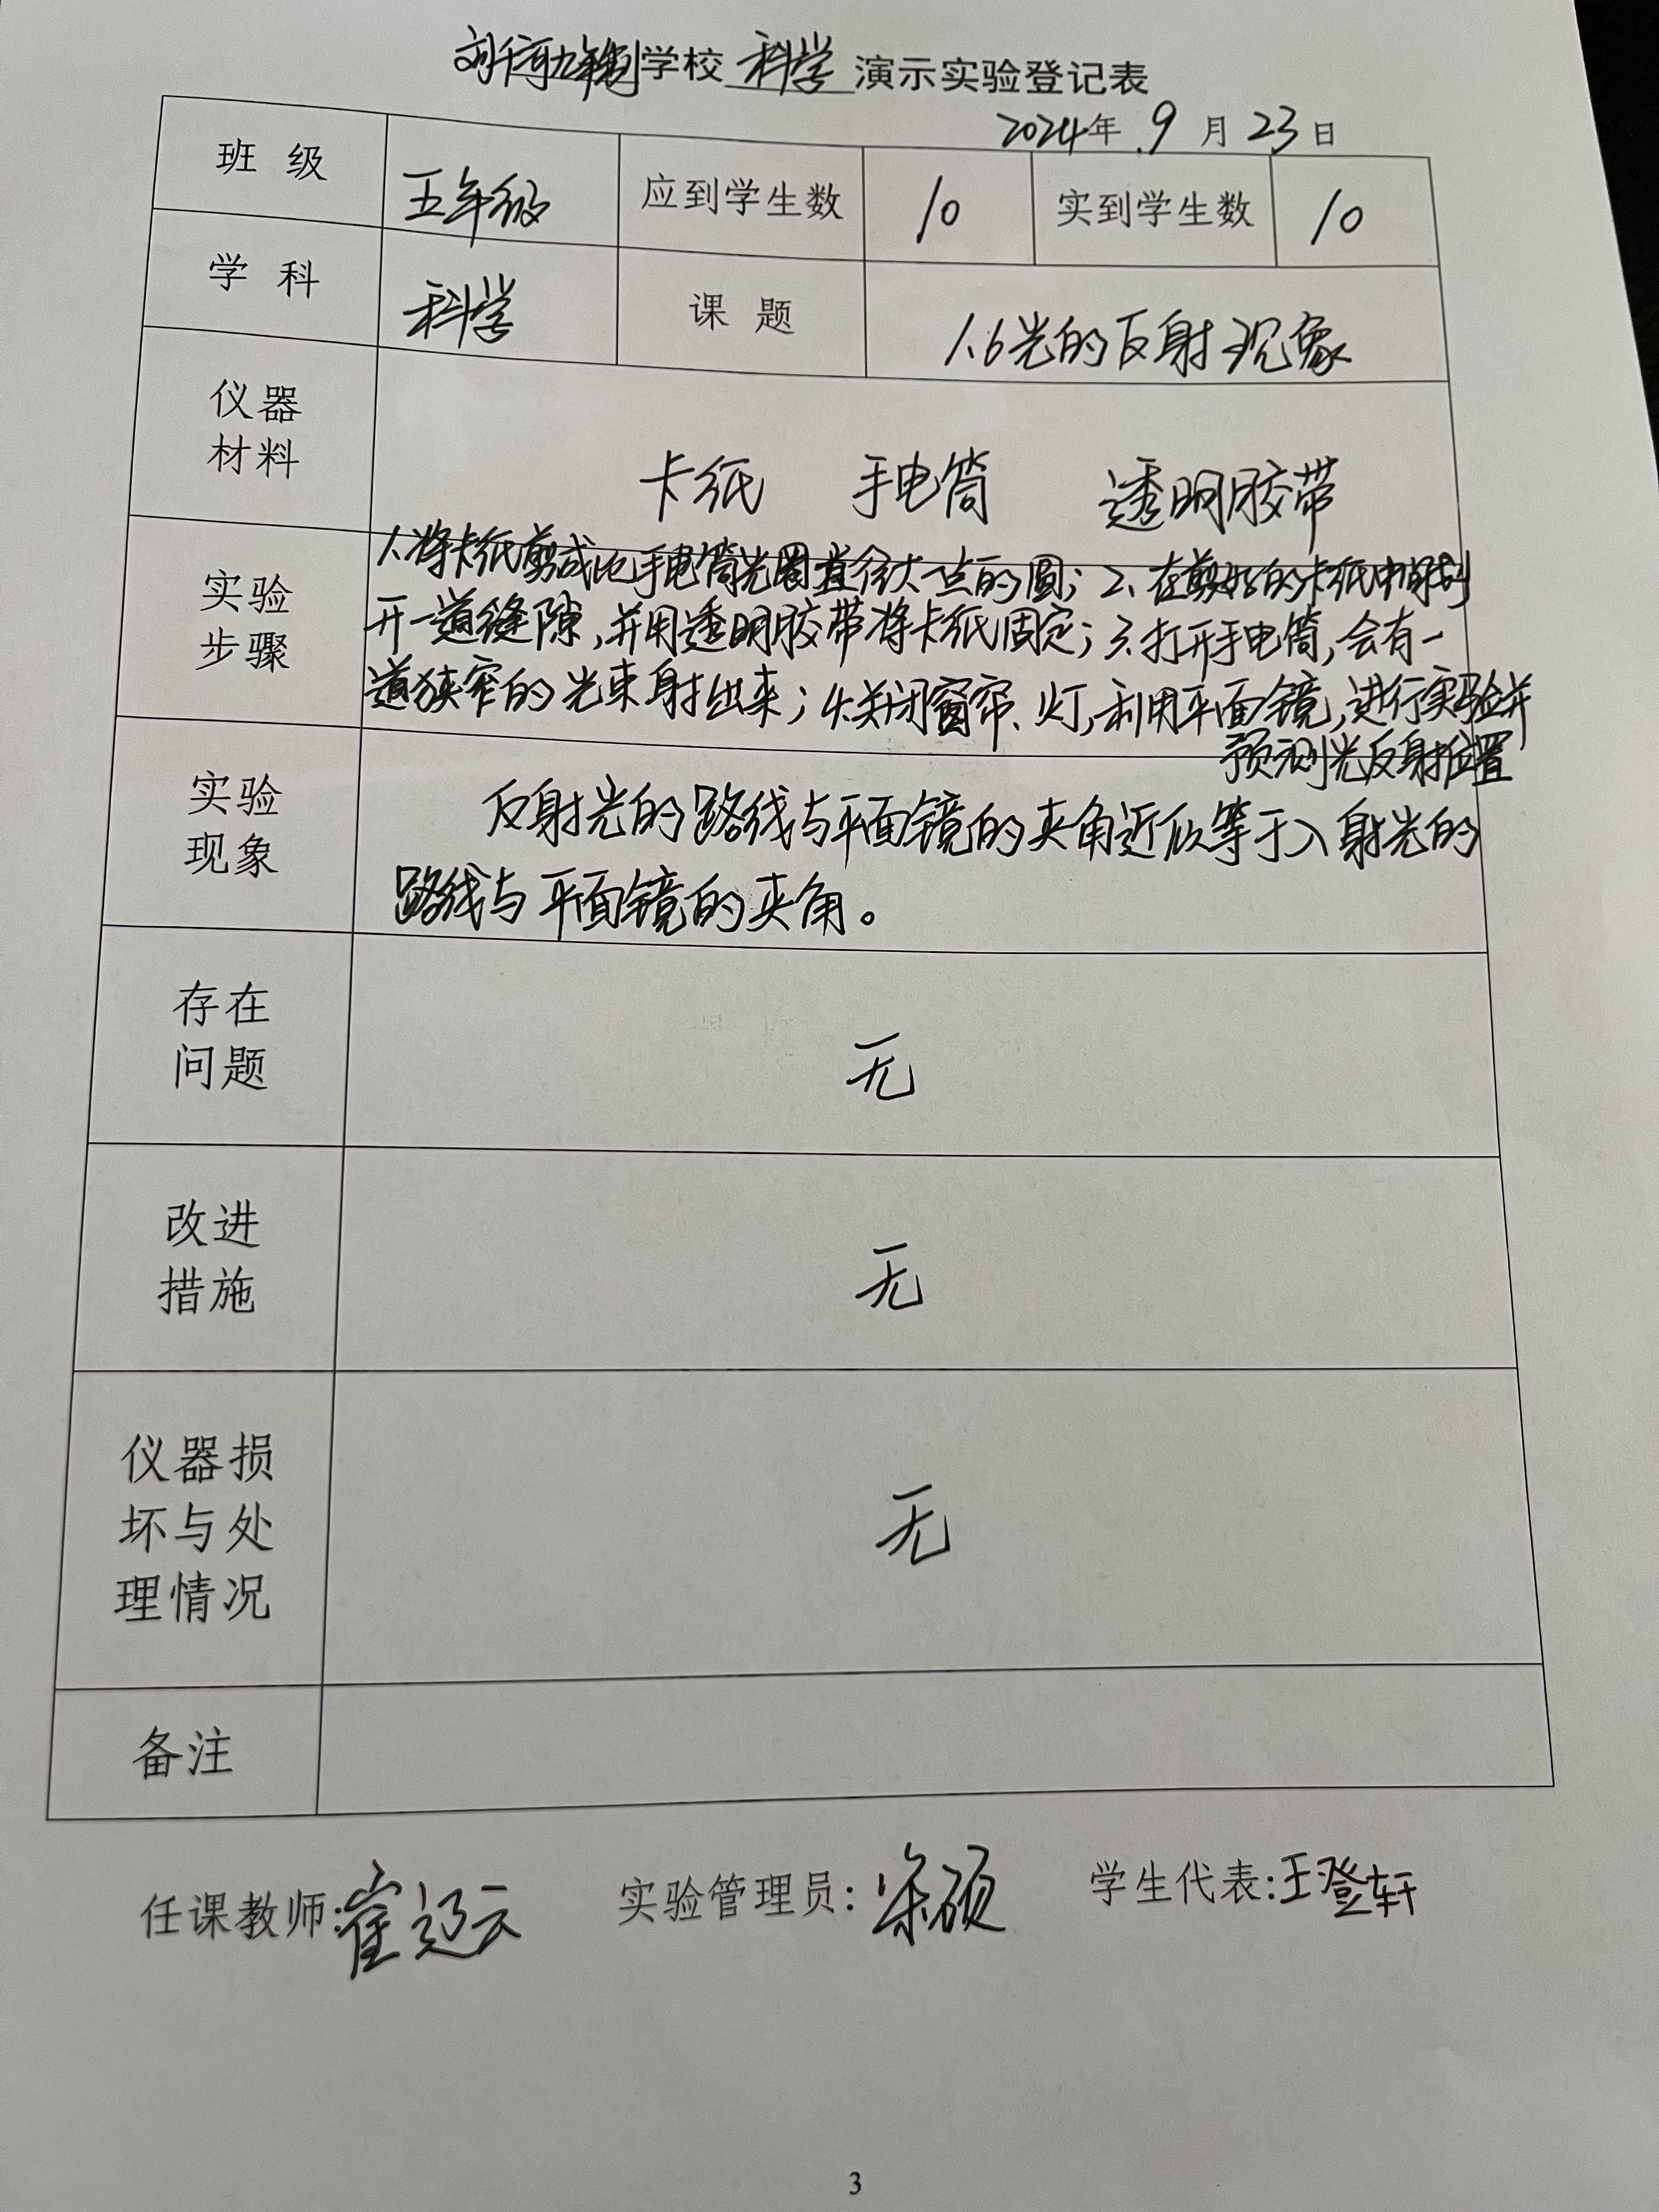 刘千斛九年制学校 科学 演示实验登记表
2024年 9 月 23 日
班 级 五年级 应到学生数 10 实到学生数 10
学 科 科学 课 题 1.6光的反射现象
仪器
材料
卡纸 手电筒 透明胶带
实验
步骤
1.将卡纸剪成比手电筒光圈直径大一点的圆；2.在剪好的卡纸中间划
开一道缝隙，并用透明胶带将卡纸固定；3.打开手电筒，会有一
道狭窄的光束射出来；4.关闭窗帘、灯，利用平面镜，进行实验并
预测光反射位置
实验
现象
反射光的路线与平面镜的夹角近似等于入射光的
路线与平面镜的夹角。
存在
问题
无
改进
措施
无
仪器损
坏与处
理情况
无
备注
任课教师：崔 实验管理员：硕 学生代表：王登轩
3